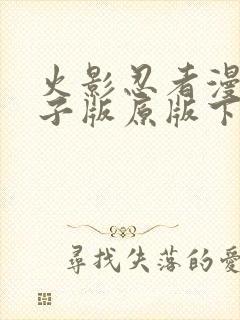 火影忍者漫
子版原版下
尋找失落的愛